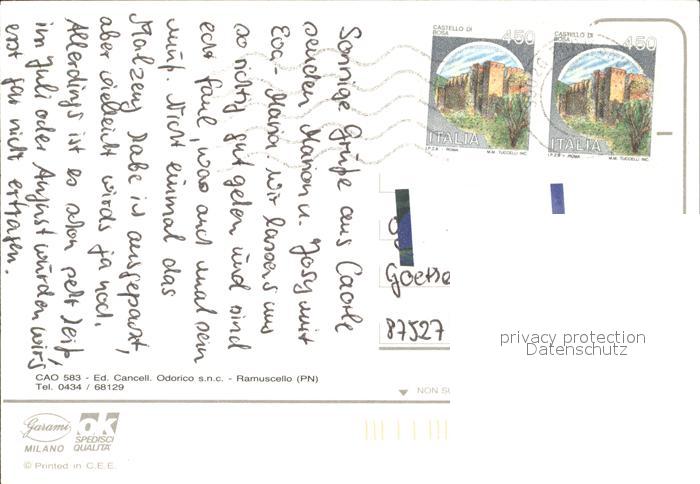 Sonnige Grüße aus Caorle
senden Marion u. Josy mit
Eva-Maria. Wir lassens uns
so richtig gut gehen und sind
echt faul, was auch mal sein
muß. Nicht einmal das
Malzeug habe ich ausgepackt,
aber vielleicht wirds ja noch.
Allerdings ist es schon sehr heiß,
im Juli oder August würden wirs
erst gar nicht ertragen.
CASTELLO DI
BOSA
450
ITALIA
I.P.Z.S. - ROMA
M.M. TUCCELLI INC.
CASTELLO DI
BOSA
450
ITALIA
I.P.Z.S. - ROMA
M.M. TUCCELLI INC.
87527
privacy protection
Datenschutz
CAO 583 - Ed. Cancell. Odorico s.n.c. - Ramuscello (PN)
Tel. 0434 / 68129
NON SU
Garami
MILANO
ok
SPEDISCI
QUALITA'
© Printed in C.E.E.